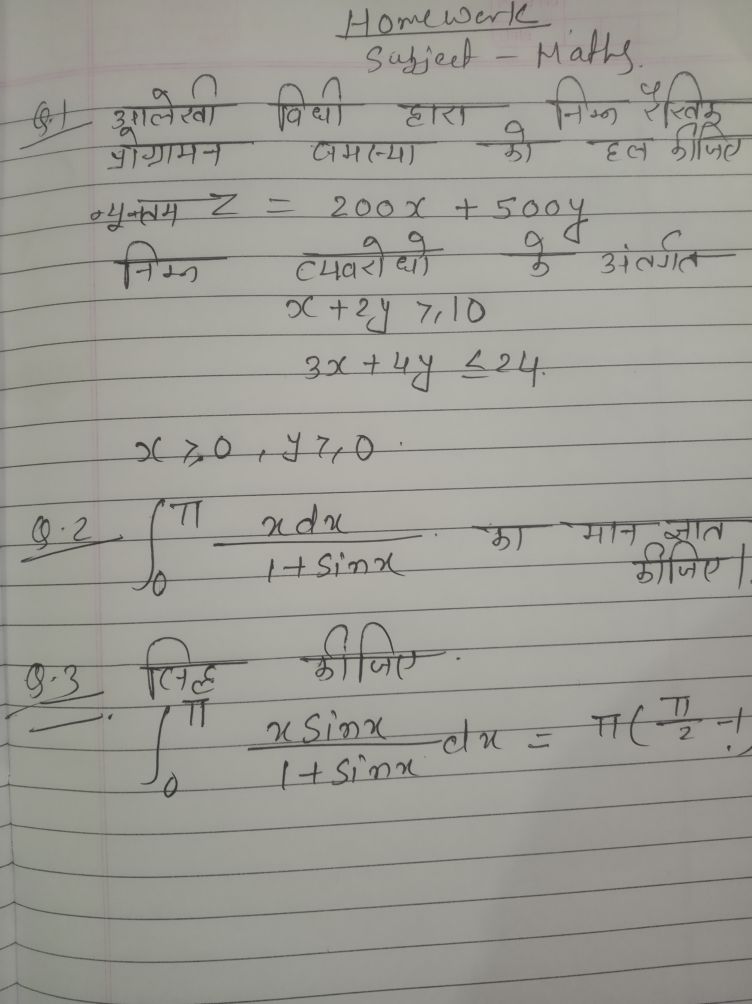 Homework
Subject - Maths.
Q.1 आलेखी विधी द्वारा निम्न रैखिक
प्रोग्रामन समस्या को हल कीजिए
न्यूनतम Z = 200x + 500y
निम्न व्यवरोधो के अंतर्गत
x + 2y ≥ 10
3x + 4y ≤ 24.
x ≥ 0 , y ≥ 0 .
Q.2 ∫₀^π xdx / 1 + sinx . का मान ज्ञात
कीजिए।
Q.3 सिद्ध कीजिए.
∫₀^π x sinx / 1 + sinx dx = π(π/2 - 1)